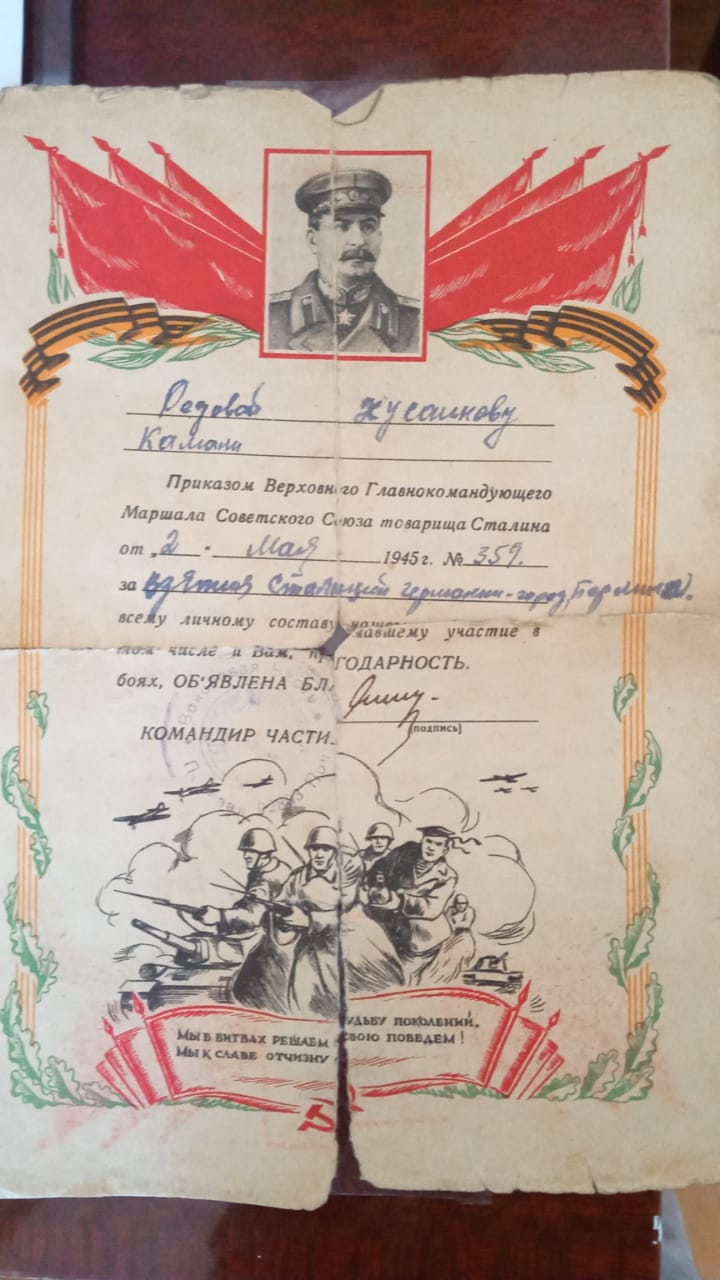 Редовой Хусаинову
Камали
Приказом Верховного Главнокомандующего
Маршала Советского Союза товарища Сталина
от „2 " Мая 1945 г. № 359.
за взятия сталицей германии - город Берлин
всему личному составу нашего принимавшему участие в
том числе и Вам, ГОДАРНОСТЬ.
боях, ОБ'ЯВЛЕНА БЛ
КОМАНДИР ЧАСТИ
[подпись]
МЫ В БИТВАХ РЕШАЕМ УДЬБУ ПОКОЛЕНИЙ,
МЫ К СЛАВЕ ОТЧИЗНУ СВОЮ ПОВЕДЕМ!